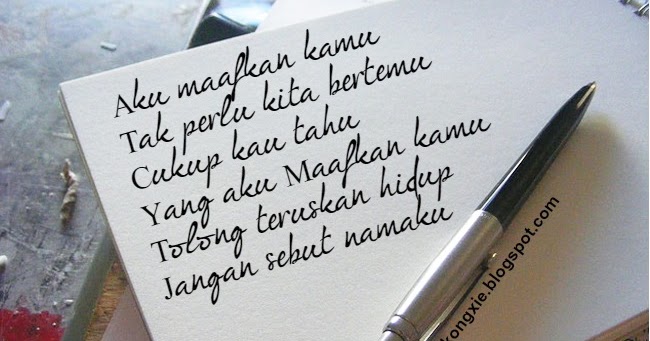 Aku maafkan kamu
Tak perlu kita bertemu
Cukup kau tahu
Yang aku Maafkan kamu
Tolong teruskan hidup
Jangan sebut namaku
kongxie.blogspot.com